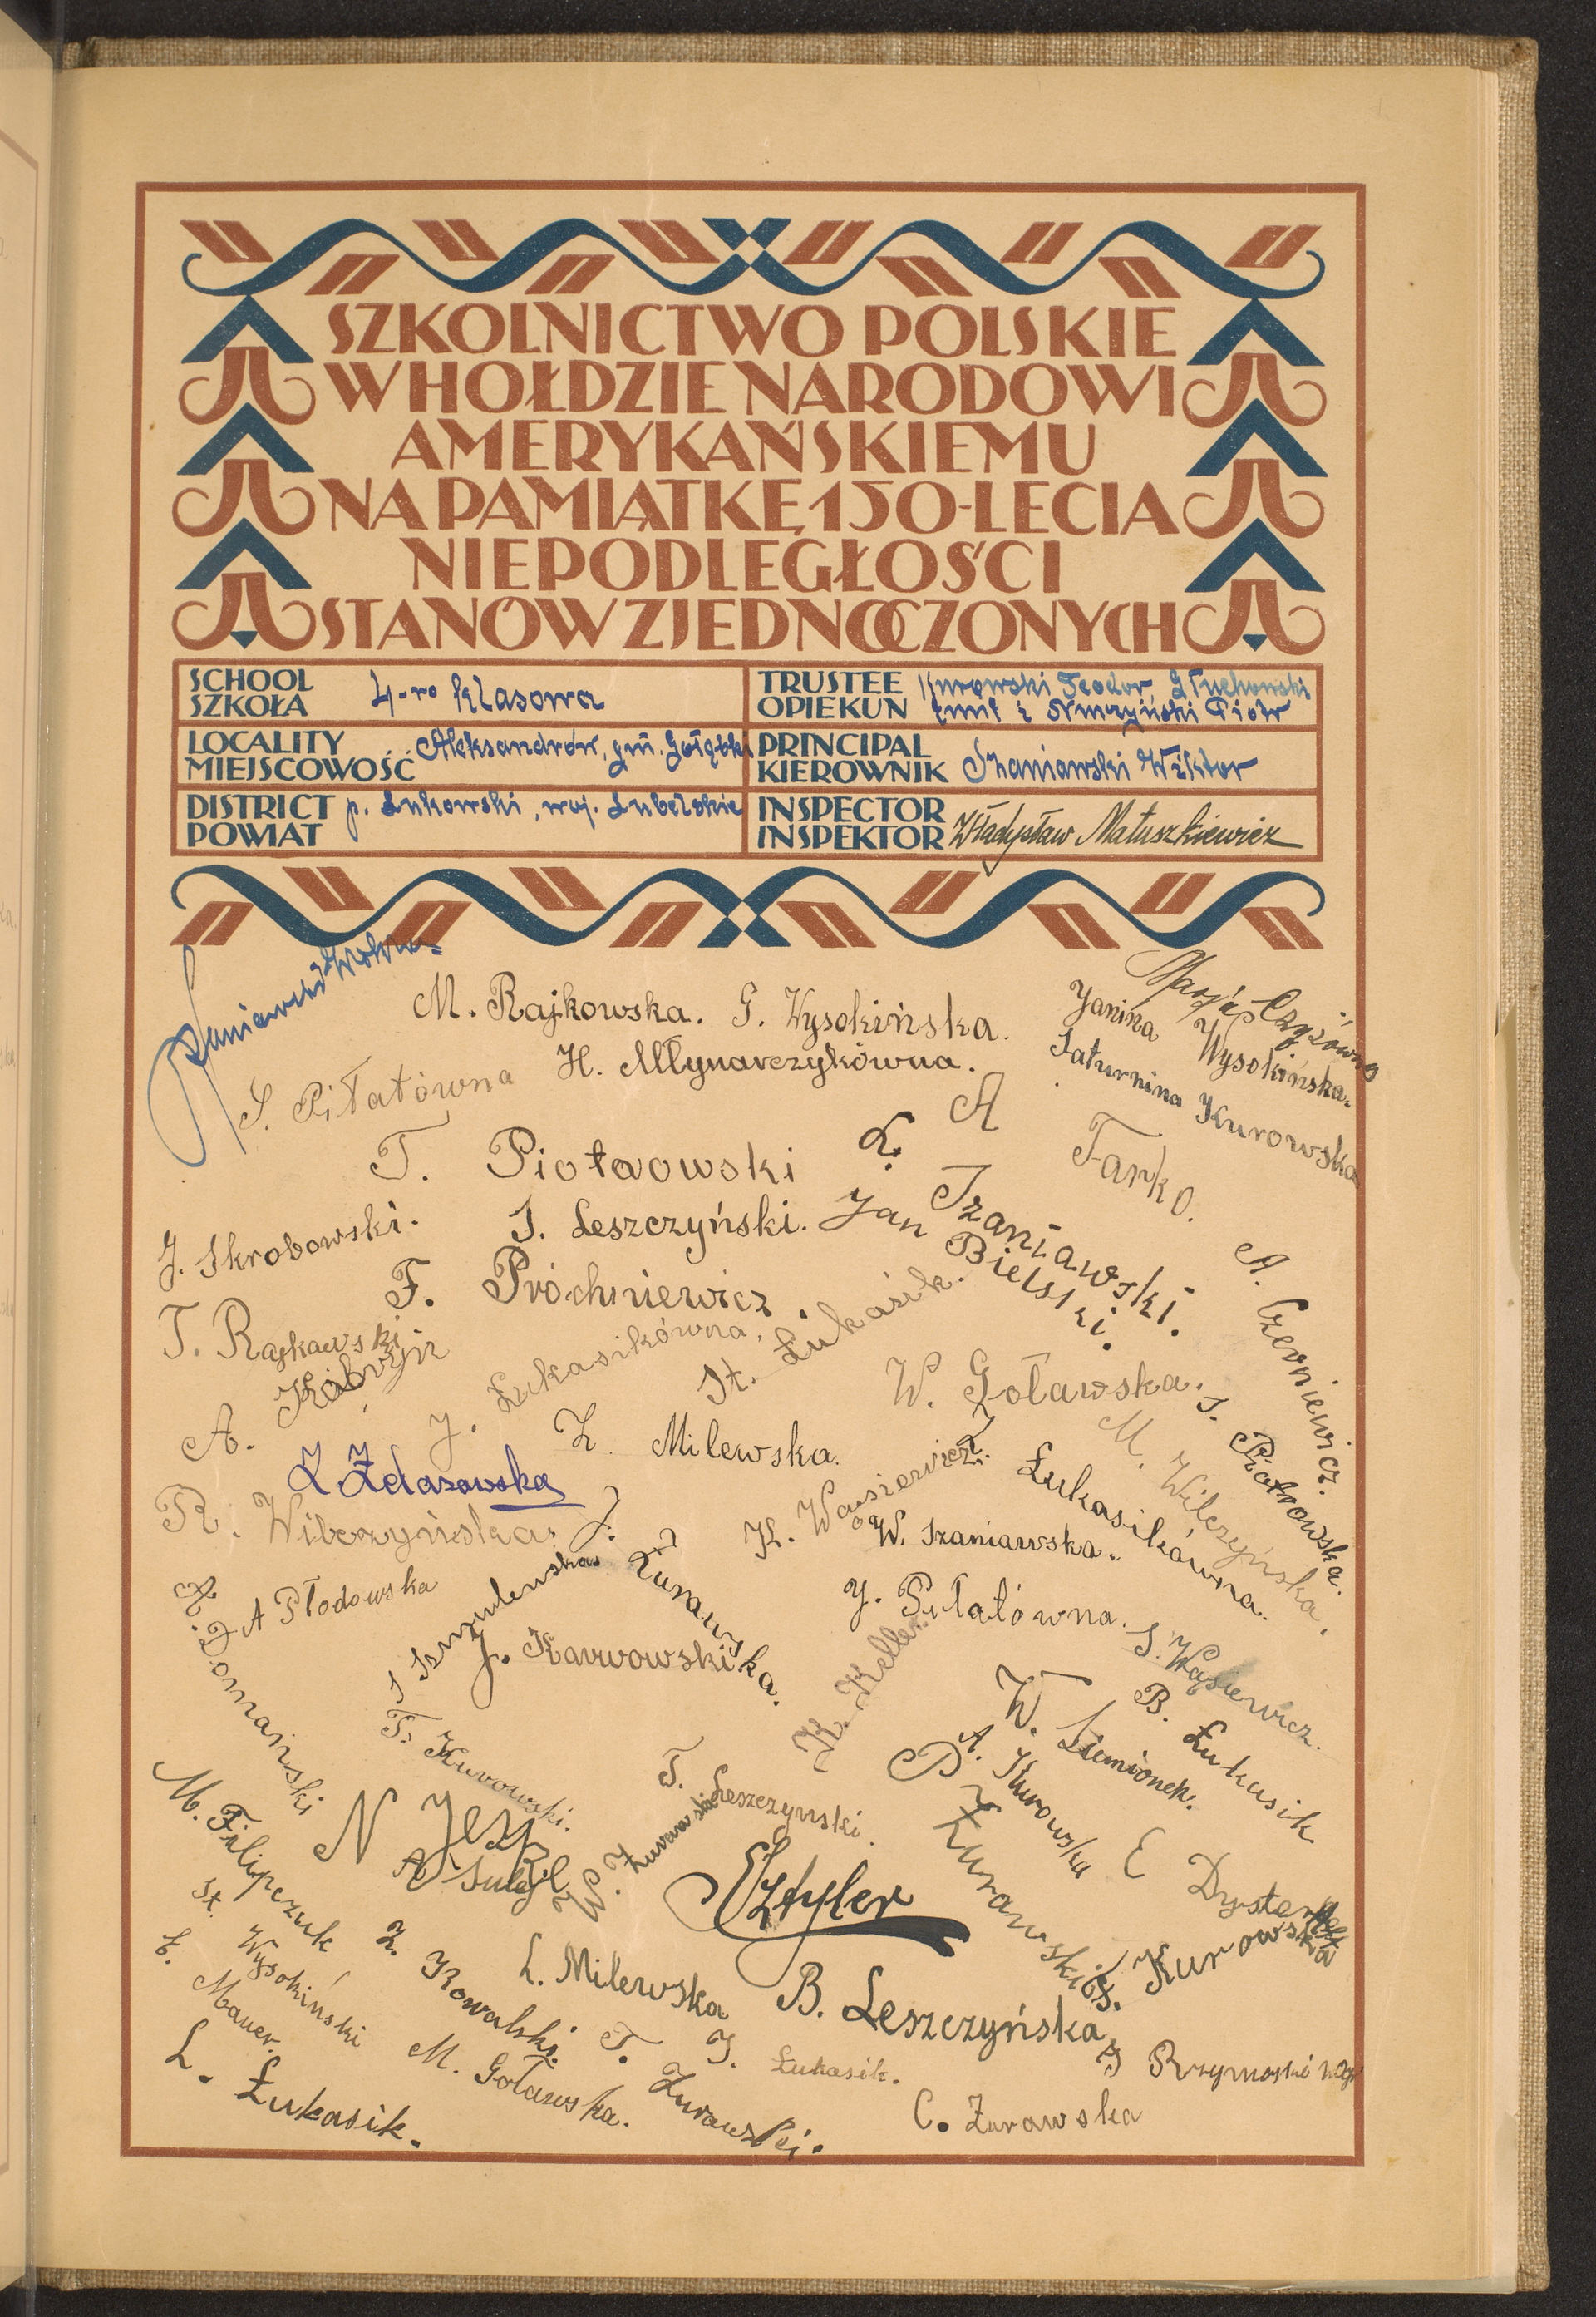 SZKOLNICTWO POLSKIE
W HOŁDZIE NARODOWI
AMERYKAŃSKIEMU
NA PAMIĄTKĘ 150-LECIA
NIEPODLEGŁOŚCI
STANÓW ZJEDNOCZONYCH
SCHOOL
SZKOŁA
4-ro klasowa
TRUSTEE
OPIEKUN
Kurowski Teodor, Głuchowski
Emil i Piotr
LOCALITY
MIEJSCOWOŚĆ
Aleksandrów, gm. Gołąbki
PRINCIPAL
KIEROWNIK
Szaniawski Wiktor
DISTRICT
POWIAT
p. Łukowski, woj. Lubelskie
INSPECTOR
INSPEKTOR
Władysław Matuszkiewicz
Szaniawski Wiktor
M. Rajkowska. G. Wysokińska.
Marja Czyżówna
Janina Wysokińska.
Saturnina Kurowska
H. Młynarczykówna.
S. Piłatówna
A Farko.
T. Piotrowski
Ł. Szaniawski.
J. Skrobowski.
J. Leszczyński.
Jan Bielski.
F. Próchniewicz.
A. Czerniewicz.
T. Rajkawski
A. Kobryń
J. Łukasikówna.
St. Łukasik.
W. Goławska.
S. Piotrowska.
M. Wilczyńska.
Z. Milewska.
Z Zdazowska
K. Wasiewicz.
Z. Łukasikówna.
R. Wilczyńska.
W. Szaniawska.
J. Żurawska.
A Płodowska
J. Piłatówna.
A. Domański
J. Karwowski
K. Keller
S. Wąsiewicz.
B. Łukasik
W. Ziemionek.
A. Kurowska
T. Kurowski.
T. Leszczynski.
W. Żurawski
P Żurawski
M. Filipczuk
N Jesz
E. Sztyler
E Dyster
F. Kurowska
St. Wysokiński
Z. Kowalski.
L. Milewska
B. Leszczyńska
E. Mauer.
M. Goławska.
T. Żurawski.
J. Łukasik.
J Rzymoski
L. Łukasik.
C. Żurawska